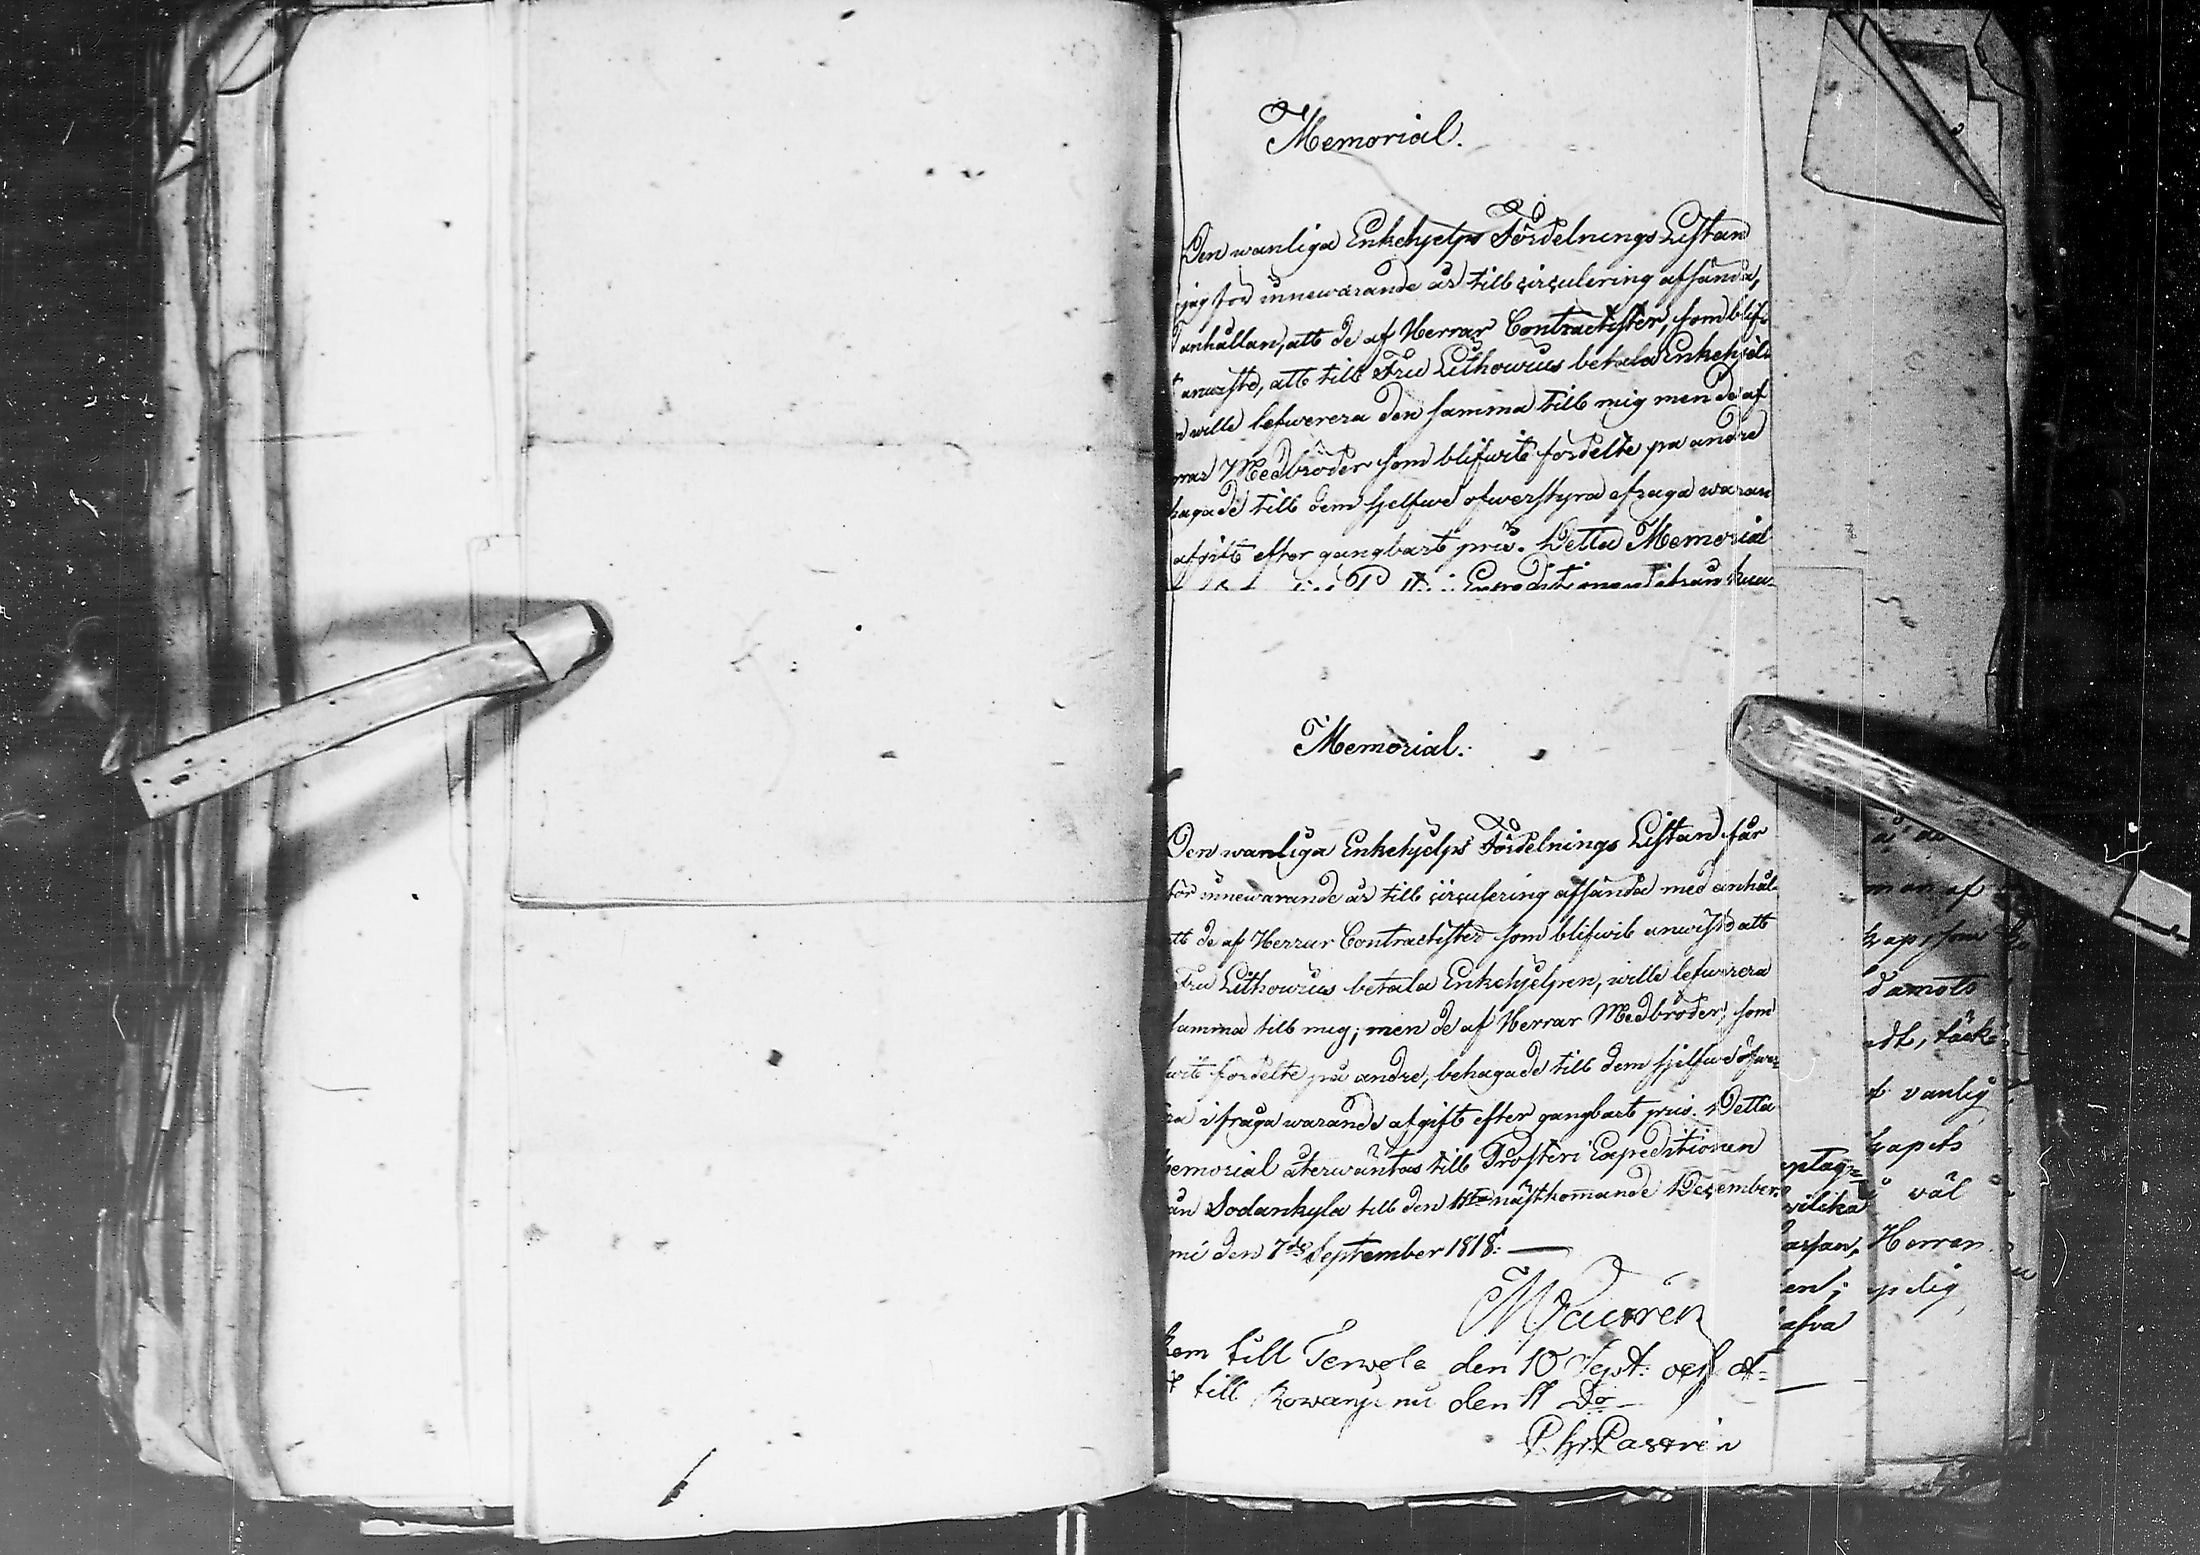 Memorial.
Den wanliga Enkehjelps Fördelnings Listan
jag för innewarande år till circulering afsända,
anhållan, att de af Herrar Contractister, som blif
anwiste, att till Fru Lithowius betala Enkehjel
wille lefwerera den samma till mig men de af
rrar Medbröder som blifwit fördelte på andre
hagade till dem sjelfwe öfwerstyra ifraga waran
afgift efter gangbart pris. Detta Memorial
Expeditionen
Memorial.
Den wanliga Enkehjelps Fördelnings Listan får
för innewarande år till circulering afsända med anhål
tt de af Herrar Contractister som blifwit anwiste att
Fru Lithowius betala Enkehjelpen, wille lefwerera
samma till mig; men de af Herrar Medbröder, som
wit fördelte på andre, behagade till dem sjelfwe öfwer
ra i fraga warande afgift efter gangbart pris. Detta
emorial återwäntas till Prosteri Expeditionen
ån Sodankyla till den 1sta nästkommande December.
mi den 7de September 1818. —
M Castrén
kom till Terwola den 10 Sept: och af=
t till Rowanjemi den 11 Do
Castrén
man af
kap som
damots
edt, täck
t vanlig
kapets
i väl
Herren
en; pelig
vilika
afva